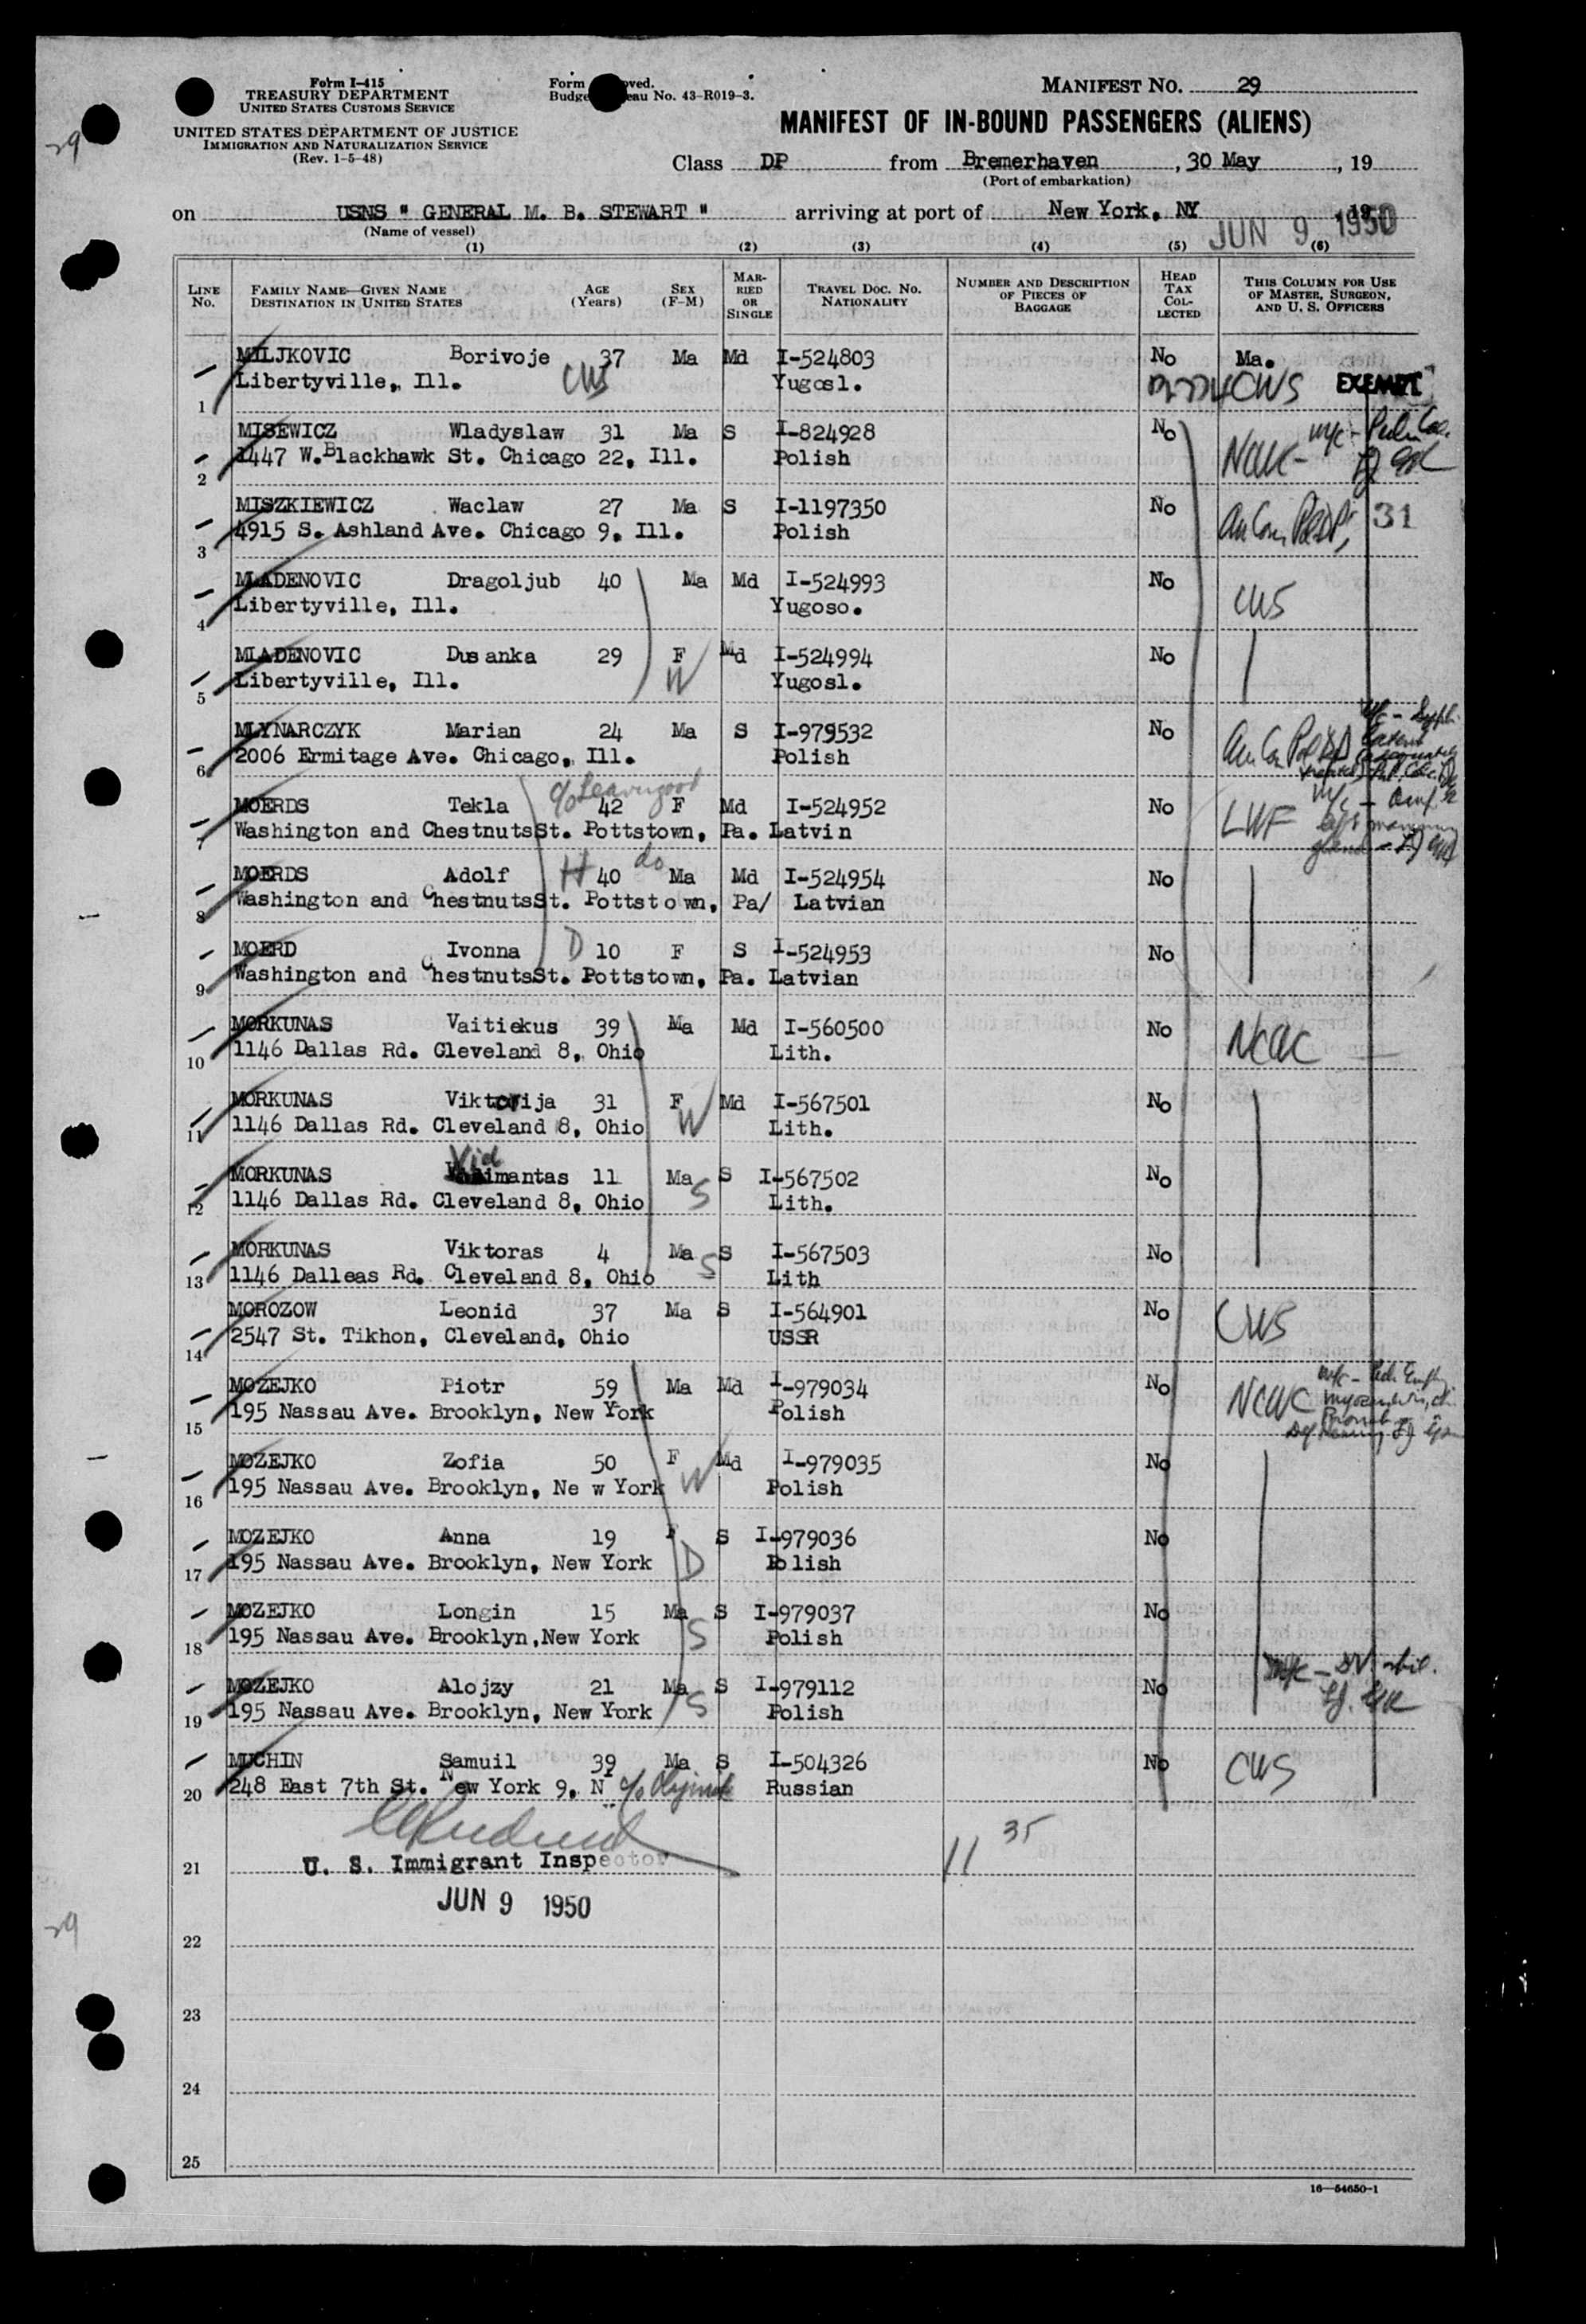 Form I-415
TREASURY DEPARTMENT
UNITED STATES CUSTOMS SERVICE
UNITED STATES DEPARTMENT OF JUSTICE
IMMIGRATION AND NATURALIZATION SERVICE
(Rev. 1-5-48)
Form
Budge No. 43-R019-3.
MANIFEST NO. 29
MANIFEST OF IN-BOUND PASSENGERS (ALIENS)
Class DP from Bremerhaven, 30 May, 19
(Port of embarkation)
on USNS " GENERAL M. B. STEWART " arriving at port of New York, NY JUN 9 1950
(Name of vessel)
(1) (2) (3) (4) (5) (6)
LINE No. FAMILY NAME—GIVEN NAME DESTINATION IN UNITED STATES AGE (Years) SEX (F-M) MARRIED OR SINGLE TRAVEL DOC. NO. NATIONALITY NUMBER AND DESCRIPTION OF PIECES OF BAGGAGE HEAD TAX COLLECTED THIS COLUMN FOR USE OF MASTER, SURGEON, AND U. S. OFFICERS
MILJKOVIC Borivoje 37 Ma Md I-524803 No Ma.
1 Libertyville, Ill. CWS Yugosl. CWS EXEMPT
MISEWICZ Wladyslaw 31 Ma S I-824928 No
2 1447 W. Blackhawk St. Chicago 22, Ill. Polish
MISZKIEWICZ Waclaw 27 Ma S I-1197350 No 31
3 4915 S. Ashland Ave. Chicago 9, Ill. Polish
MLADENOVIC Dragoljub 40 Ma Md I-524993 No
4 Libertyville, Ill. Yugoso. CWS
MLADENOVIC Dusanka 29 F Md I-524994 No
5 Libertyville, Ill. W Yugosl.
MLYNARCZYK Marian 24 Ma S I-979532 No
6 2006 Ermitage Ave. Chicago, Ill. Polish
MOERDS Tekla 42 F Md I-524952 No
7 Washington and ChestnutsSt. Pottstown, Pa. Latvin LWF
MOERDS Adolf H 40 do Ma Md I-524954 No
8 Washington and ChestnutsSt. Pottstown, Pa/ Latvian
MOERD Ivonna D 10 F S I-524953 No
9 Washington and ChestnutsSt. Pottstown, Pa. Latvian
MORKUNAS Vaitiekus 39 Ma Md I-560500 No
10 1146 Dallas Rd. Cleveland 8, Ohio Lith. NCWC
MORKUNAS Viktorija 31 F Md I-567501 No
11 1146 Dallas Rd. Cleveland 8, Ohio W Lith.
MORKUNAS Vidimantas 11 Ma S I-567502 No
12 1146 Dallas Rd. Cleveland 8, Ohio S Lith.
MORKUNAS Viktoras 4 Ma S I-567503 No
13 1146 Dalleas Rd. Cleveland 8, Ohio S Lith
MOROZOW Leonid 37 Ma S I-564901 No
14 2547 St. Tikhon, Cleveland, Ohio USSR CWS
MOZEJKO Piotr 59 Ma Md I-979034 No
15 195 Nassau Ave. Brooklyn, New York Polish NCWC
MOZEJKO Zofia 50 F Md I-979035 No
16 195 Nassau Ave. Brooklyn, Ne w York W Polish
MOZEJKO Anna 19 F S I-979036 No
17 195 Nassau Ave. Brooklyn, New York D Polish
MOZEJKO Longin 15 Ma S I-979037 No
18 195 Nassau Ave. Brooklyn,New York S Polish
MOZEJKO Alojzy 21 Ma S I-979112 No
19 195 Nassau Ave. Brooklyn, New York S Polish
MUCHIN Samuil 39 Ma S I-504326 No
20 248 East 7th St. New York 9, N Russian CWS
11 35
21 U. S. Immigrant Inspector
JUN 9 1950
22
23
24
25
16—54650-1
29
29